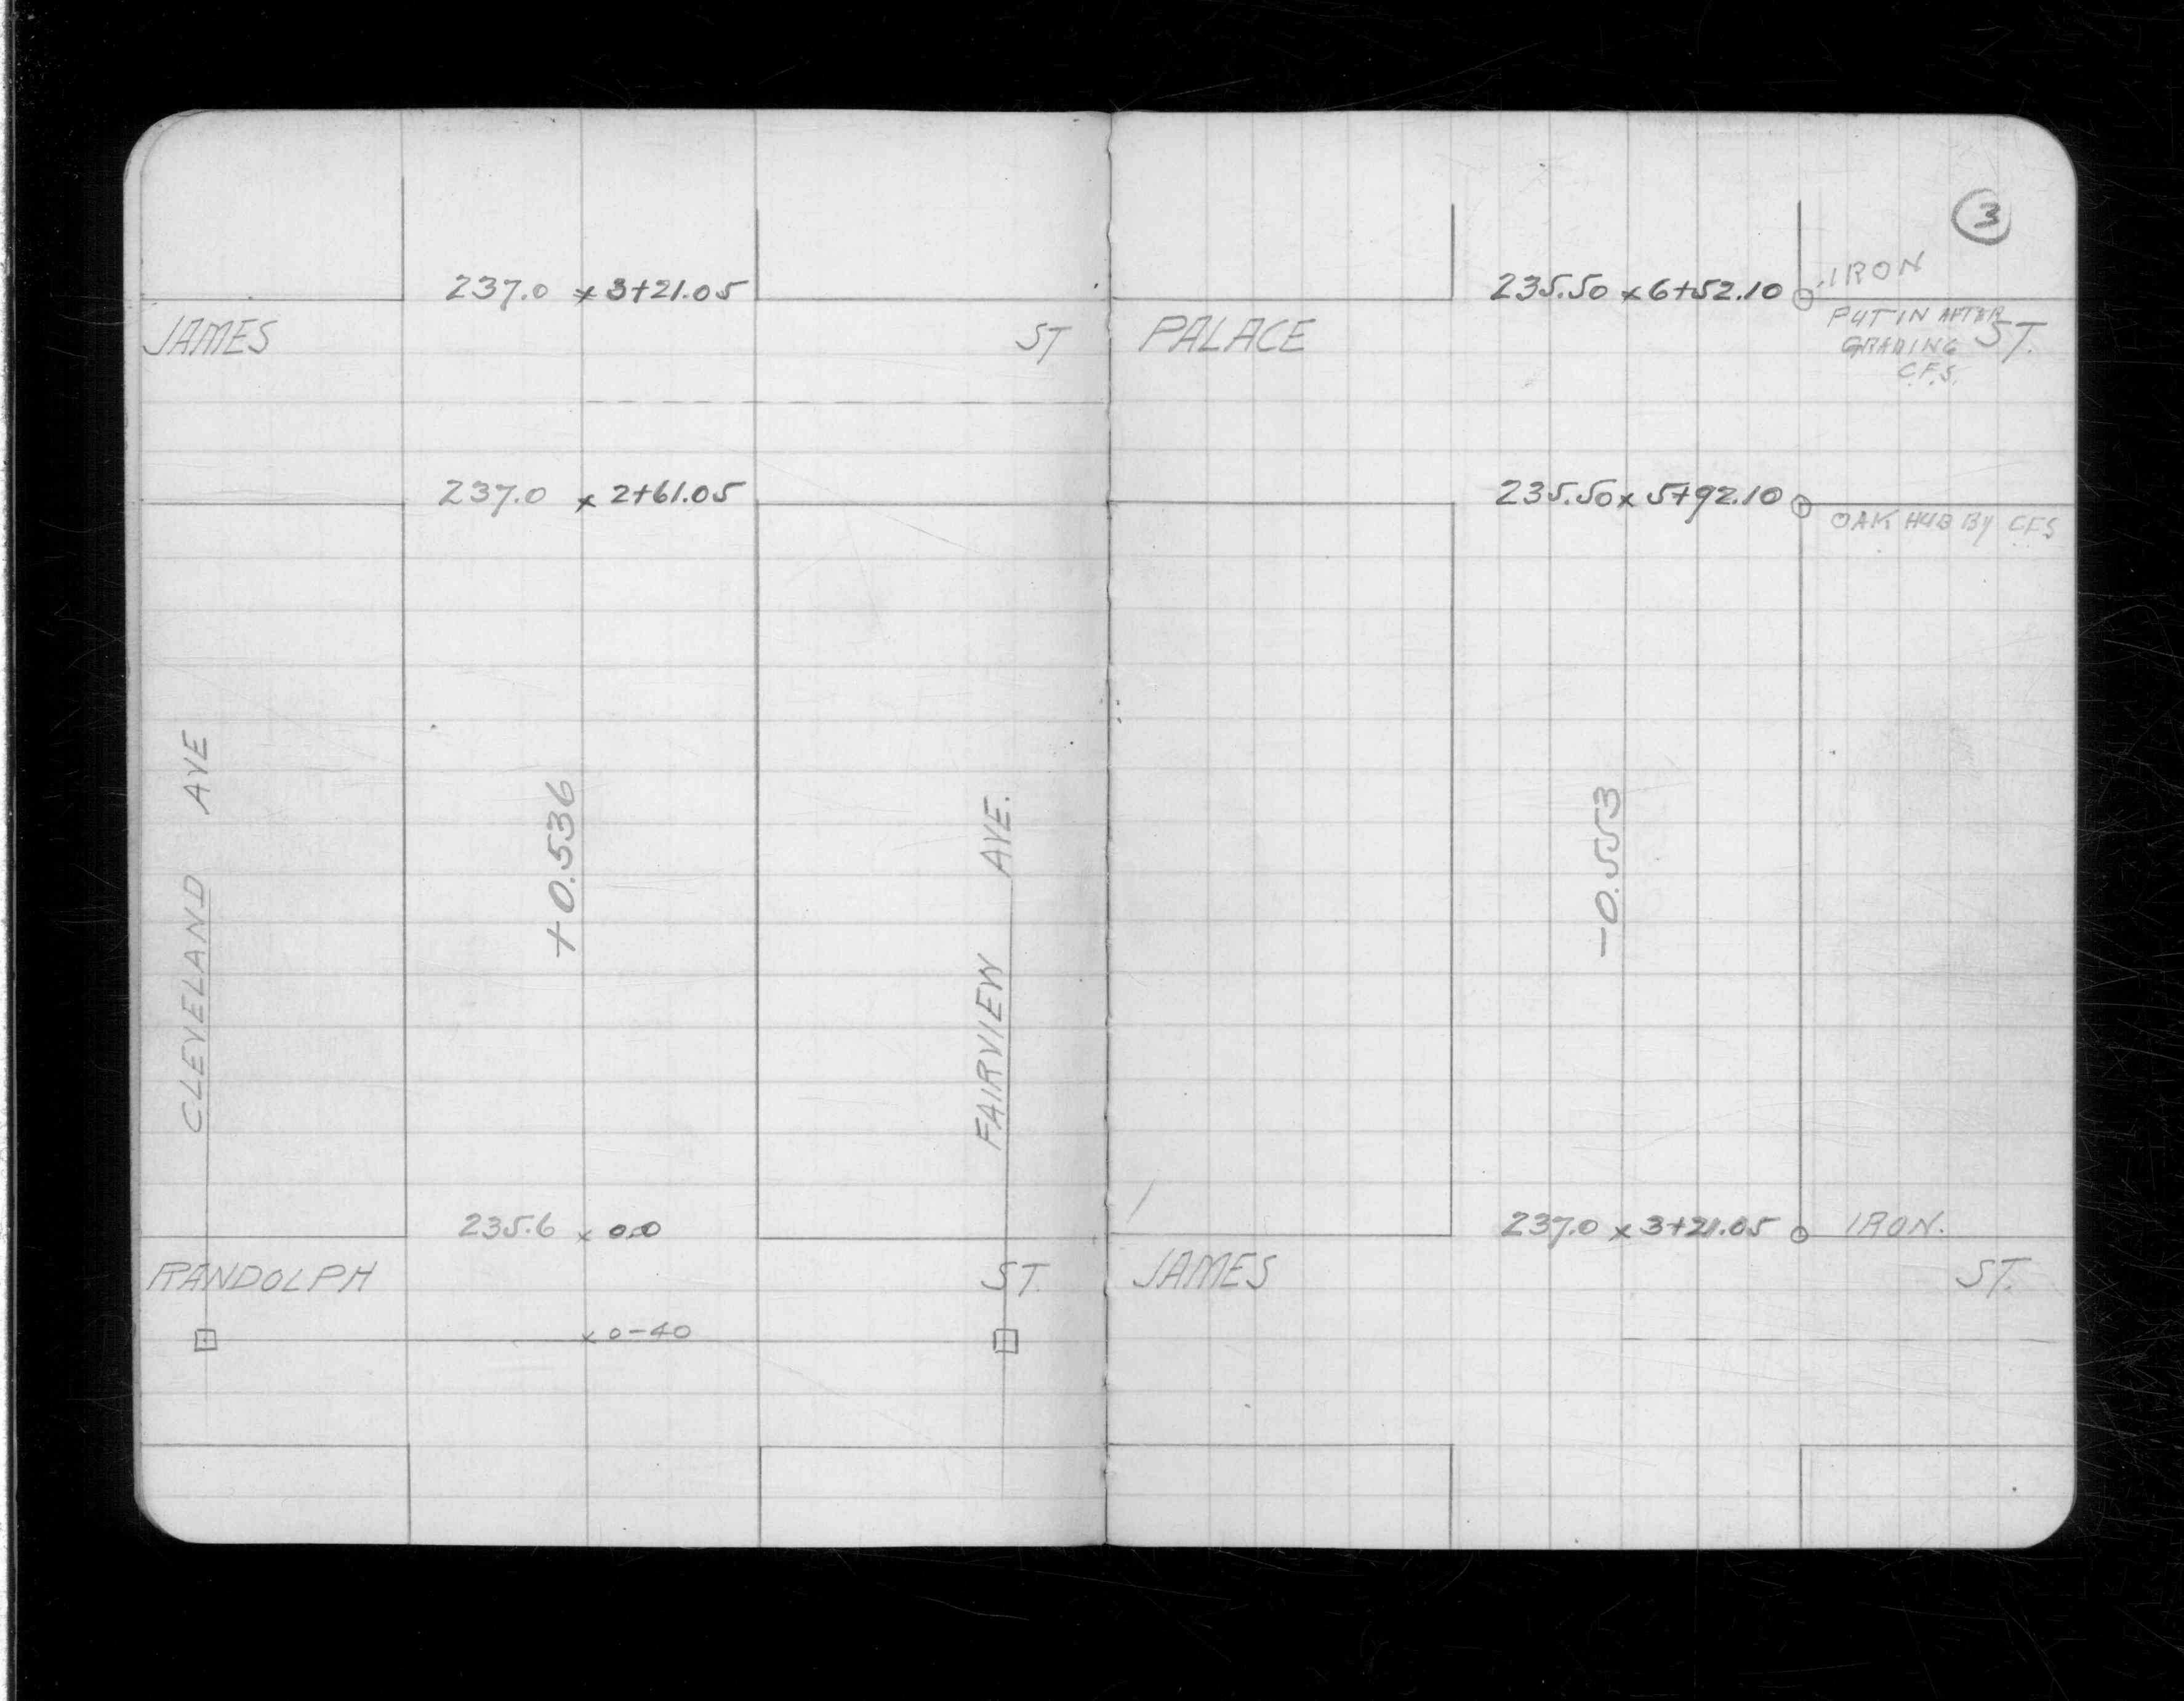 237.0 x 3+21.05
JAMES ST
237.0 x 2+61.05
CLEVELAND AVE
+0.536
FAIRVIEW AVE.
235.6 x 0.0
RANDOLPH ST.
x 0-40
3
235.50 x 6+52.10 IRON
PUT IN AFTER
GRADING
C.F.S.
PALACE ST.
235.50 x 5+92.10
OAK HUB BY C.F.S
-0.553
237.0 x 3+21.05 IRON.
JAMES ST.